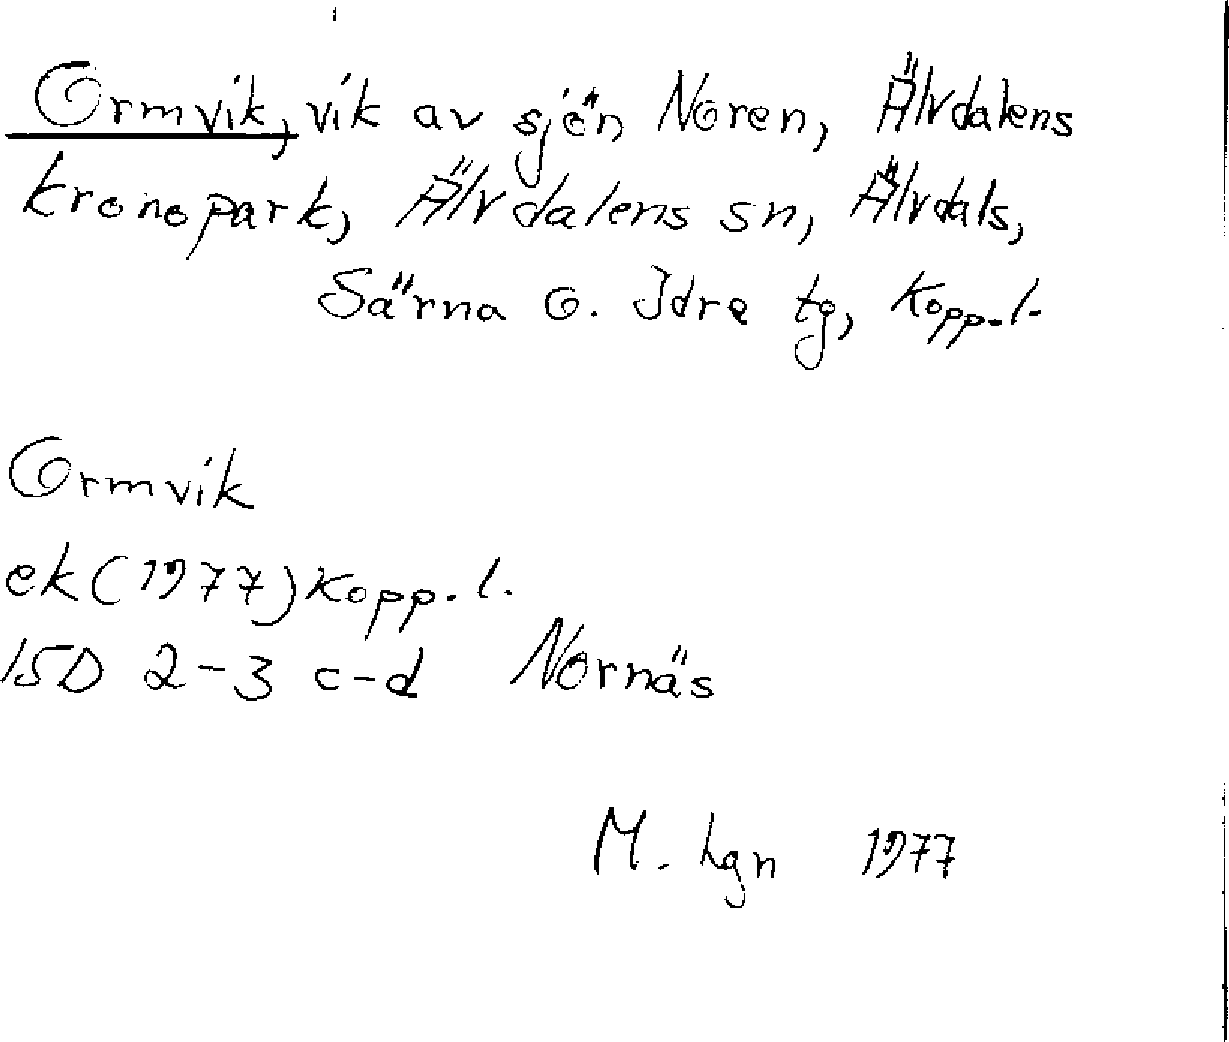 Ormvik, vik av sjön Noren, Älvdalens
kronopark, Älvdalens sn, Älvdals,
Särna o. Idre tg, Kopp. l.
Ormvik
ek (1977) Kopp. l.
15D 2-3 c-d Nornäs
M. Lgn 1977